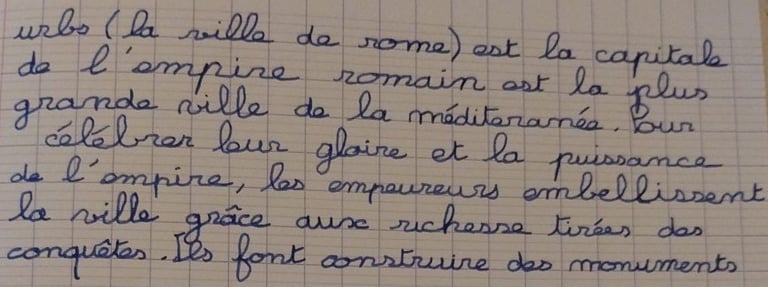 urbs (la ville de rome) est la capitale
de l'empire romain est la plus
grande ville de la méditeranée. Pour
célébrer leur gloire et la puissance
de l'empire, les empeureurs embellissent
la ville grâce aux richesse tirées des
conquêtes. Ils font construire des monuments